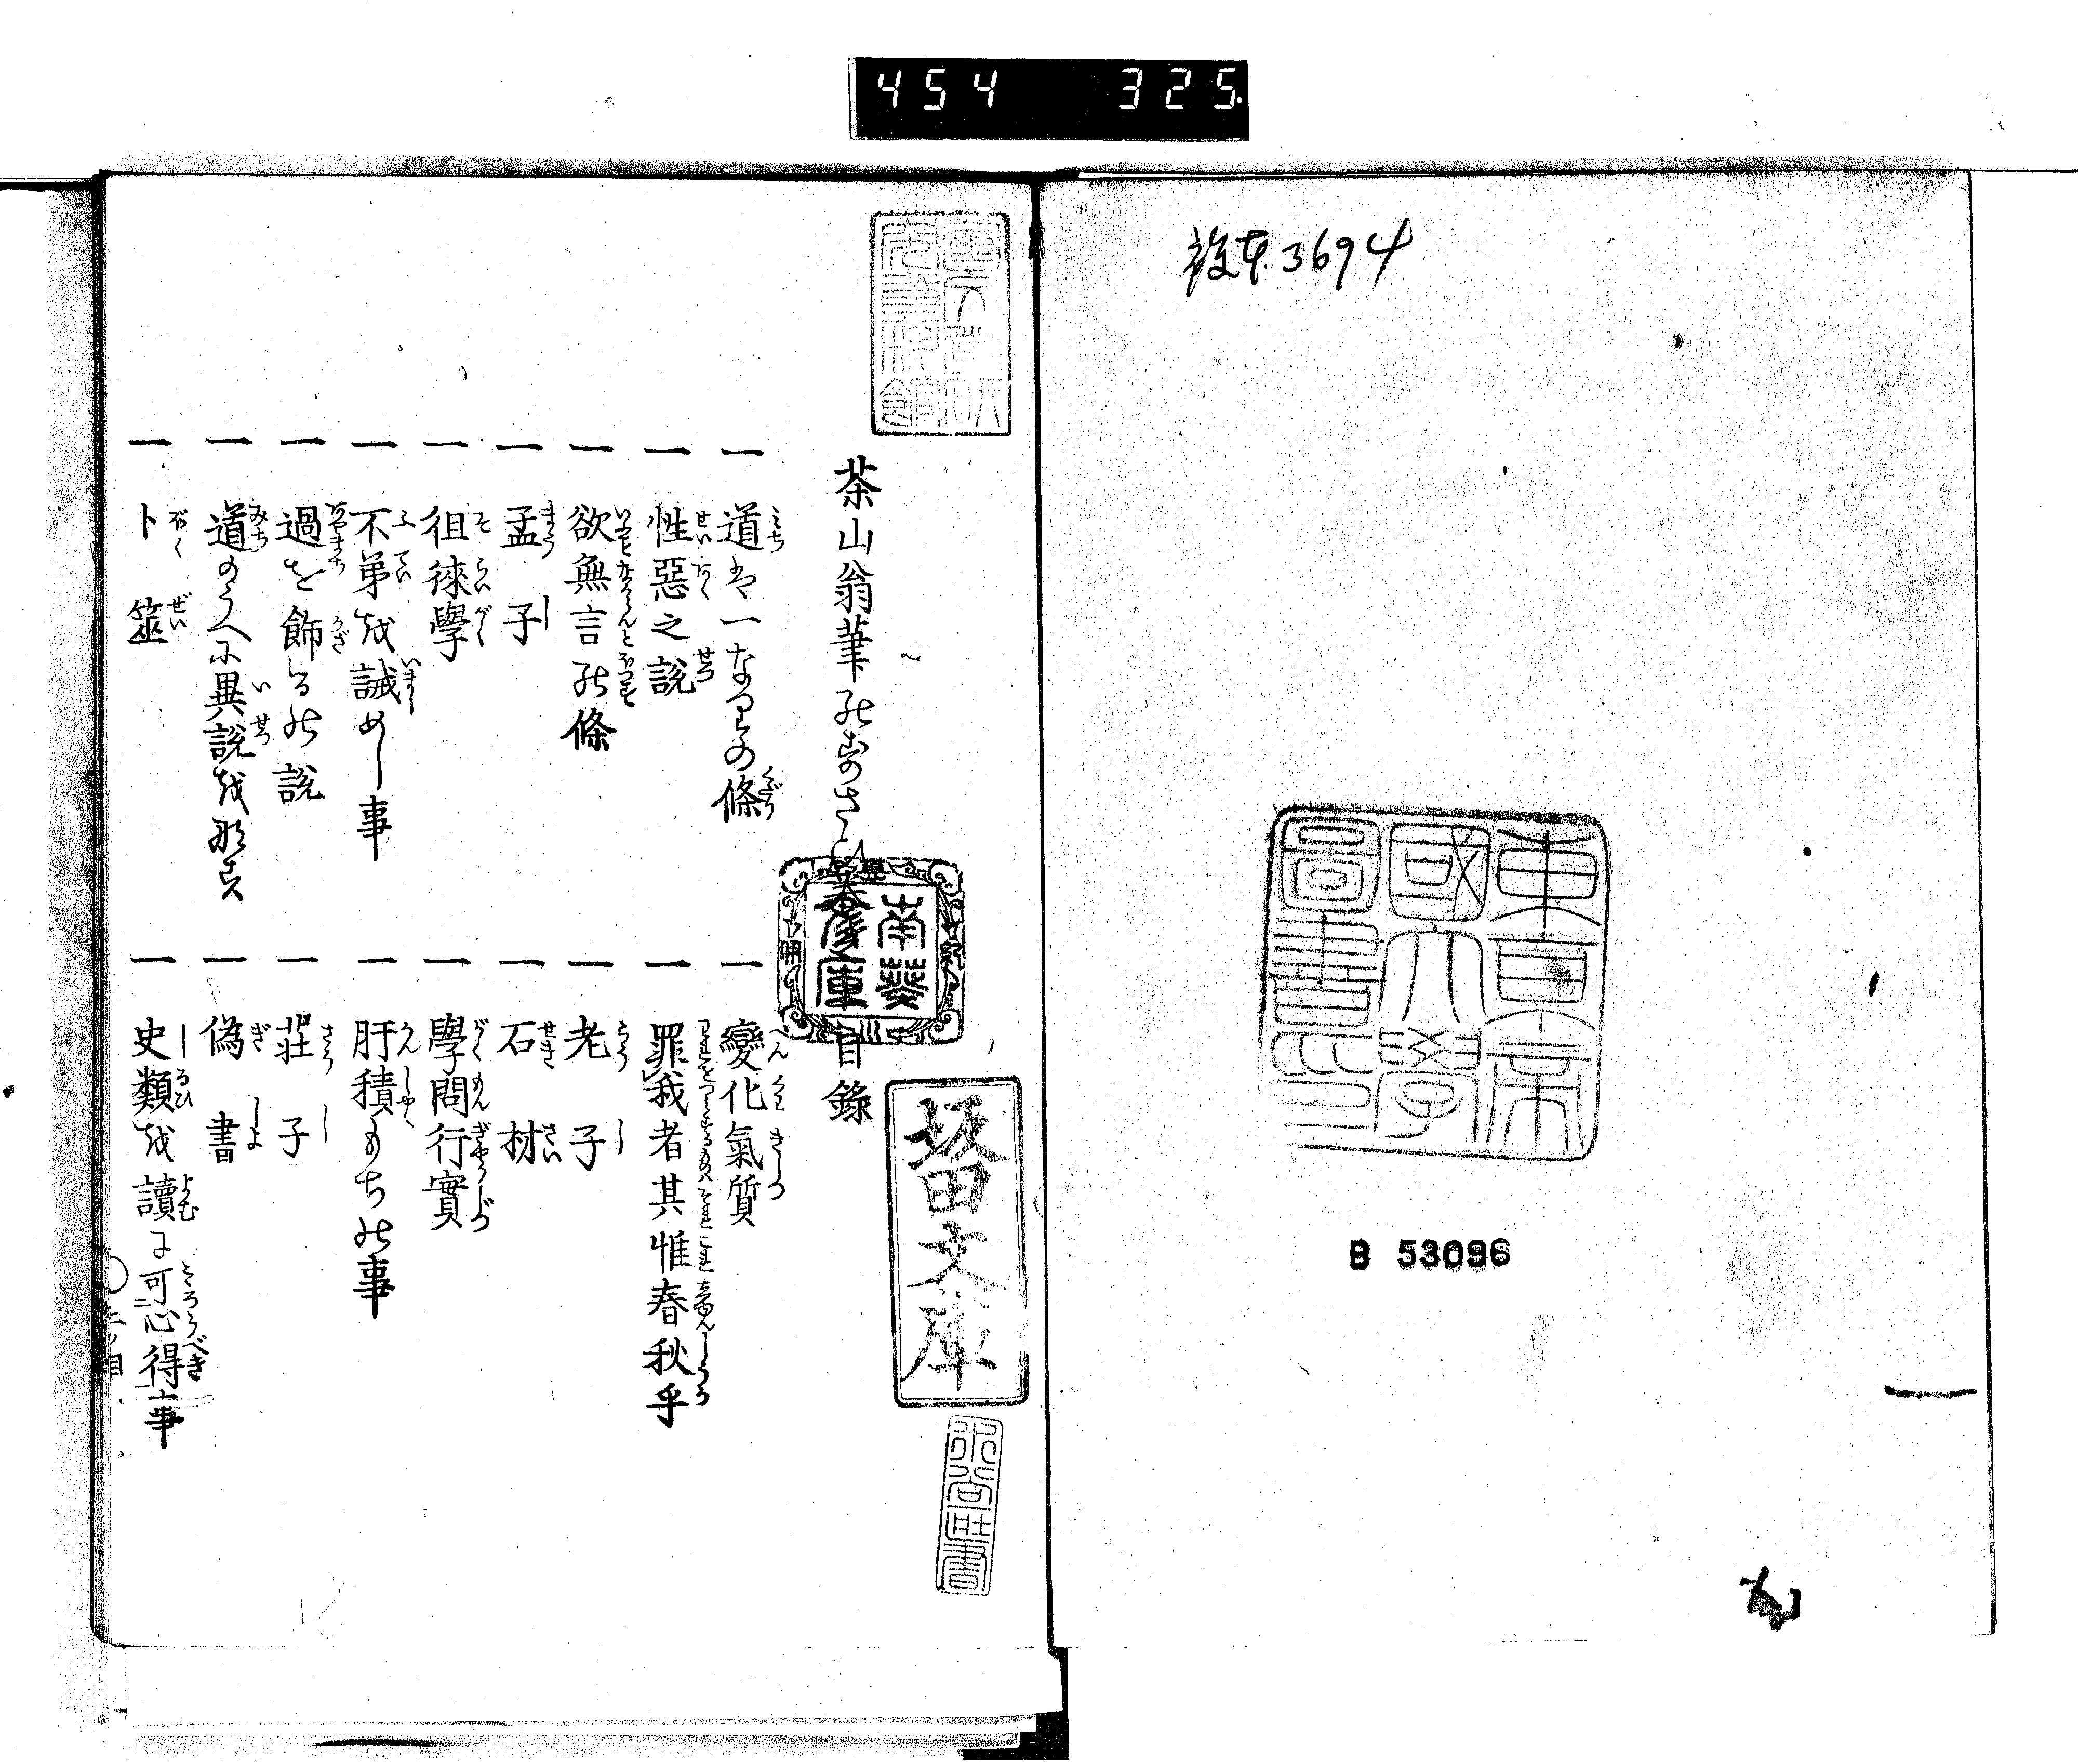 454 325
複本3694
東京帝
國大學
圖書印
B 53096
茶山翁筆のすさび
目録
南葵
文庫
阪田文庫
一 道は一なりの條
一 變化氣質
一 性惡之説
一 罪我者其惟春秋乎
一 欲無言の條
一 老子
一 孟子
一 石材
一 徂徠學
一 學問行實
一 不弟を誡めし事
一 肝積もちの事
一 過を飾るの説
一 莊子
一 道のうへに異説をなす
一 偽書
一 卜筮
一 史類を讀に可心得事